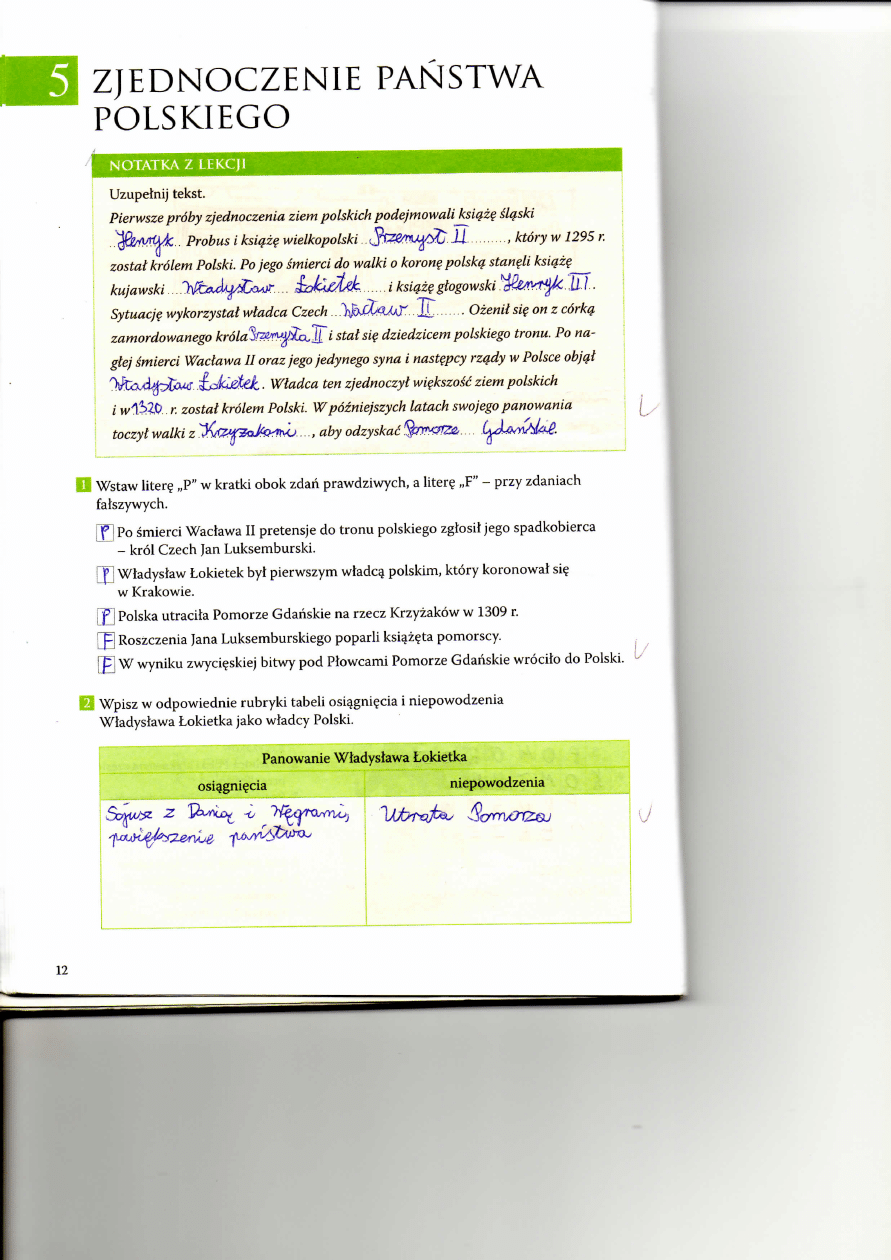 5 ZJEDNOCZENIE PAŃSTWA
POLSKIEGO
NOTATKA Z LEKCJI
Uzupełnij tekst.
Pierwsze próby zjednoczenia ziem polskich podejmowali książę śląski
Henryk Probus i książę wielkopolski Przemysł II, który w 1295 r.
został królem Polski. Po jego śmierci do walki o koronę polską stanęli książę
kujawski Władysław Łokietek i książę głogowski Henryk III.
Sytuację wykorzystał władca Czech Wacław II. Ożenił się on z córką
zamordowanego króla Przemysła II i stał się dziedzicem polskiego tronu. Po na-
głej śmierci Wacława II oraz jego jedynego syna i następcy rządy w Polsce objął
Władysław Łokietek. Władca ten zjednoczył większość ziem polskich
i w 1320 r. został królem Polski. W późniejszych latach swojego panowania
toczył walki z Krzyżakami, aby odzyskać Pomorze Gdańskie.
1 Wstaw literę „P” w kratki obok zdań prawdziwych, a literę „F” – przy zdaniach
fałszywych.
P Po śmierci Wacława II pretensje do tronu polskiego zgłosił jego spadkobierca
– król Czech Jan Luksemburski.
P Władysław Łokietek był pierwszym władcą polskim, który koronował się
w Krakowie.
P Polska utraciła Pomorze Gdańskie na rzecz Krzyżaków w 1309 r.
F Roszczenia Jana Luksemburskiego poparli książęta pomorscy.
F W wyniku zwycięskiej bitwy pod Płowcami Pomorze Gdańskie wróciło do Polski.
2 Wpisz w odpowiednie rubryki tabeli osiągnięcia i niepowodzenia
Władysława Łokietka jako władcy Polski.
Panowanie Władysława Łokietka
osiągnięcia niepowodzenia
Sojusz z Danią i Węgrami, Utrata Pomorza
powiększenie państwa
12